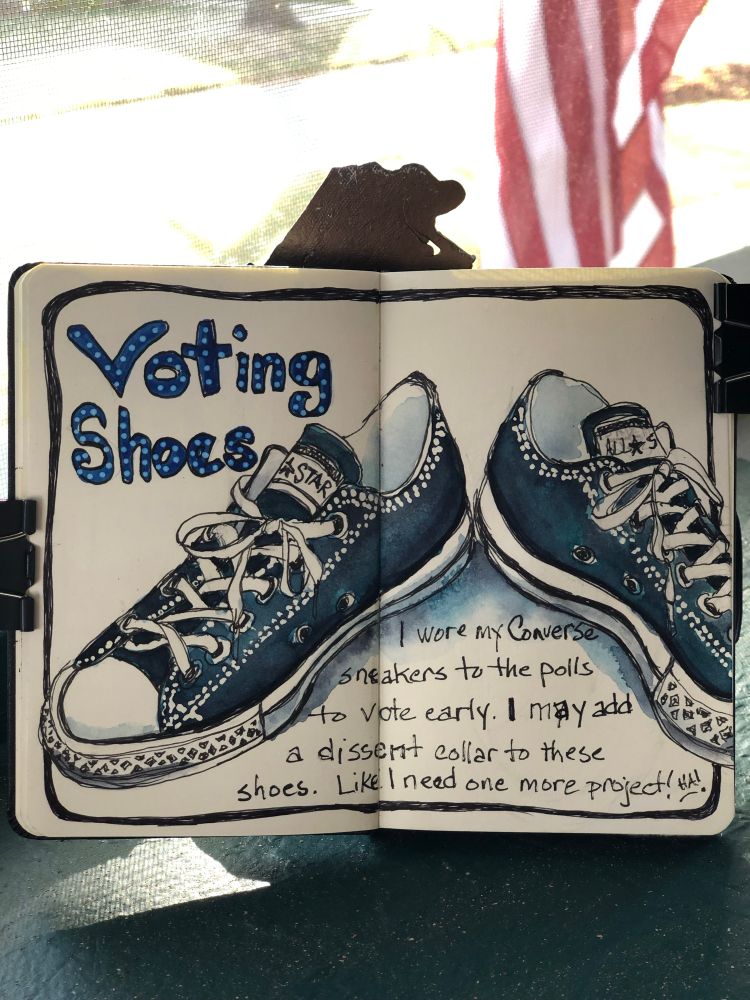 Voting
Shoes
★STAR
ALL★S
I wore my Converse
sneakers to the polls
to vote early. I may add
a dissent collar to these
shoes. Like I need one more project! HA!